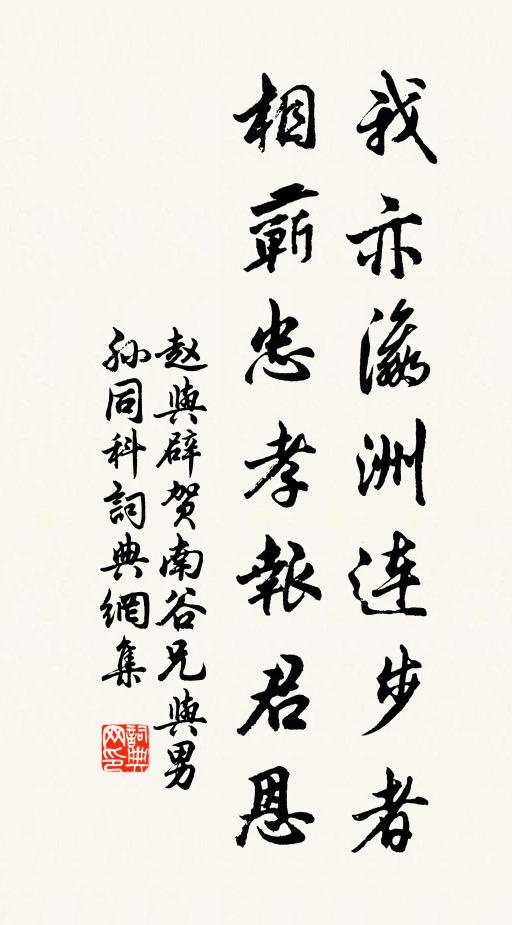 我亦瀛洲连步者
相蕲忠孝報君恩
赵與辟贺南谷兄與男
孙同科詞典網集
詞典网印